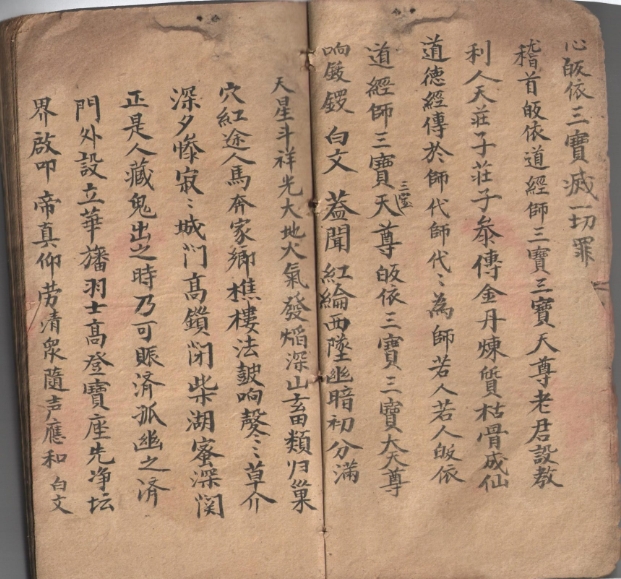 心皈依三寶滅一切罪
稽首皈依道經師三寶三寶天尊老君設教
利人天莊子莊子叅傳金丹煉質枯骨成仙
道德經傳於師代師代〻為師若人若人皈依
道經師三寶三寶天尊皈依三寶三寶大天尊
响鈸鑼 白文 蓋聞紅綸西墜幽暗初分滿
天星斗祥光大地火氣發焰深山畜類归巢
穴紅途人馬奔家鄉樵樓法皷响鼕〻草介
深夕慘寂〻城门高鎖闭柴湖蜜深閔
正是人藏鬼出之時乃可賑济孤幽之済
門外設立華旛羽士高登寶座先净坛
界啟叩 帝真仰劳清衆隨声應和 白文